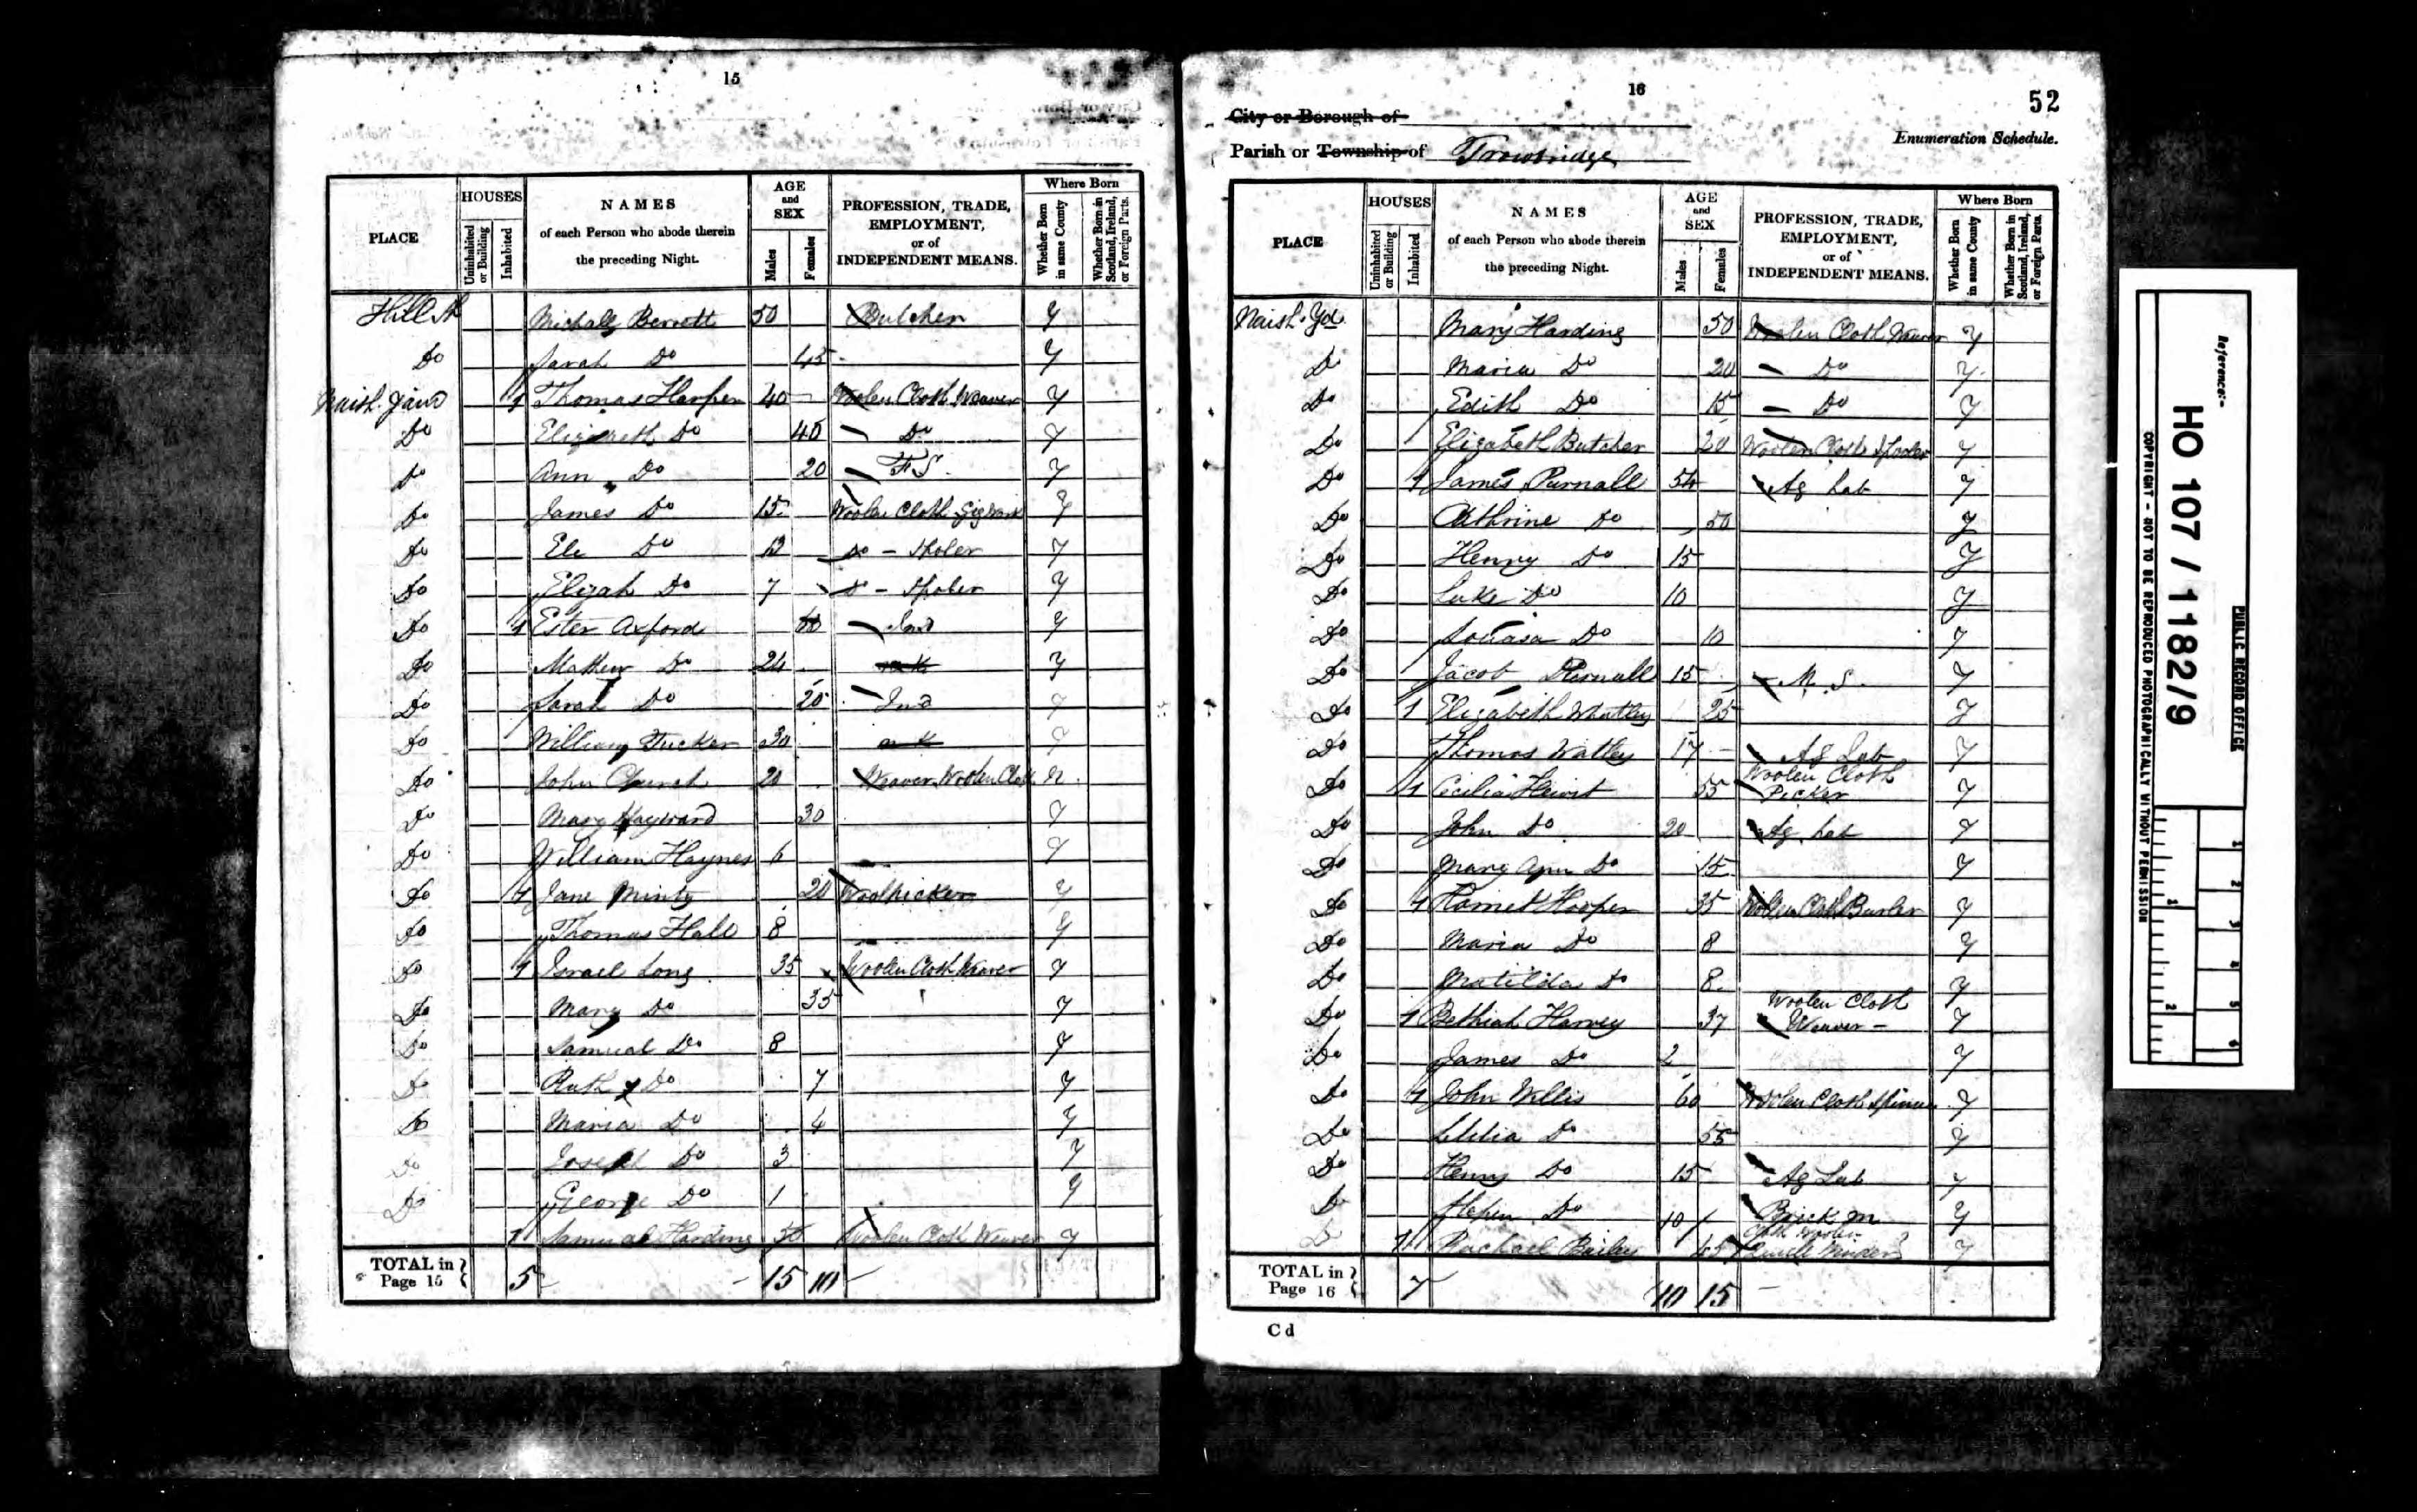 15
PLACE HOUSES Uninhabited or Building Inhabited NAMES of each Person who abode therein the preceding Night. AGE and SEX Males Females PROFESSION, TRADE, EMPLOYMENT, or of INDEPENDENT MEANS. Where Born Whether Born in same County Whether Born in Scotland, Ireland, or Foreign Parts.
Hill St 50 Butcher Y
Do Sarah Do 45 Y
Naish. Yard 1 Thomas Harper 40 Woolen Cloth Weaver Y
Do Elizabeth Do 40 Do Y
Do Ann Do 20 F S Y
Do James Do 15 Woolen Cloth Y
Do Eli Do Do - Spoler Y
Do Elijah Do 7 Do - Spoler Y
Do 1 Ester Axford Ind Y
Do Mathew Do 24 Y
Do Sarah Do 20 Ind Y
Do William Tucker 30 Y
Do John Church 20 Weaver Woolen Cloth N
Do Mary Hayward 30 Y
Do William Haynes 6 Y
Do 1 Jane Minty 20 Woolpicker Y
Do Thomas Hall 8 Y
Do 1 Israel Long 35 Woolen Cloth Weaver Y
Do Mary Do 35 Y
Do Samual Do 8 Y
Do Ruth Do 7 Y
Do Maria Do 4 Y
Do Joseph Do 3 Y
Do George Do 1 Y
1 Samual Harding 50 Woolen Cloth Weaver Y
TOTAL in Page 15 5 15 10
16
52
City or Borough of
Enumeration Schedule.
Parish or Township of Trowbridge
PLACE HOUSES Uninhabited or Building Inhabited NAMES of each Person who abode therein the preceding Night. AGE and SEX Males Females PROFESSION, TRADE, EMPLOYMENT, or of INDEPENDENT MEANS. Where Born Whether Born in same County Whether Born in Scotland, Ireland, or Foreign Parts.
Naish. Yd. Mary Harding 50 Woolen Cloth Weaver Y
Do Maria Do 20 Do Y
Do Edith Do 15 Do Y
Do Elizabeth Butcher 20 Woolen Cloth Spoler Y
Do 1 James Purnall 54 Ag Lab Y
Do Cathrine Do 50 Y
Do Henry Do 15 Y
Do Luke Do 10 Y
Do Do 10 Y
Do Jacob Purnall 15 M. S. Y
Do 1 Elizabeth Whatley 25 Y
Do Thomas Watley 17 Ag Lab Y
Do 1 Cicilia Hewit 55 Woolen Cloth Picker Y
Do John Do 20 Ag Lab Y
Do Mary Ann Do 15 Y
Do 1 Hooper 35 Woolen Cloth Burler Y
Do Maria Do 8 Y
Do Matilda Do 8 Y
Do 1 Bethiah Harvey 37 Woolen Cloth Weaver Y
Do James Do 2 Y
Do 1 John Willis 60 Woolen Cloth Spinner Y
Do Do 55 Y
Do Henry Do 15 Ag Lab Y
Do Do 10 Brick M Y
Do 1 Rachael Bailey 45 Y
TOTAL in Page 16 7 10 15
C d
Reference:-
HO 107 / 1182/9
PUBLIC RECORD OFFICE
COPYRIGHT - NOT TO BE REPRODUCED PHOTOGRAPHICALLY WITHOUT PERMISSION
1 2
1 2 3 4 5 6